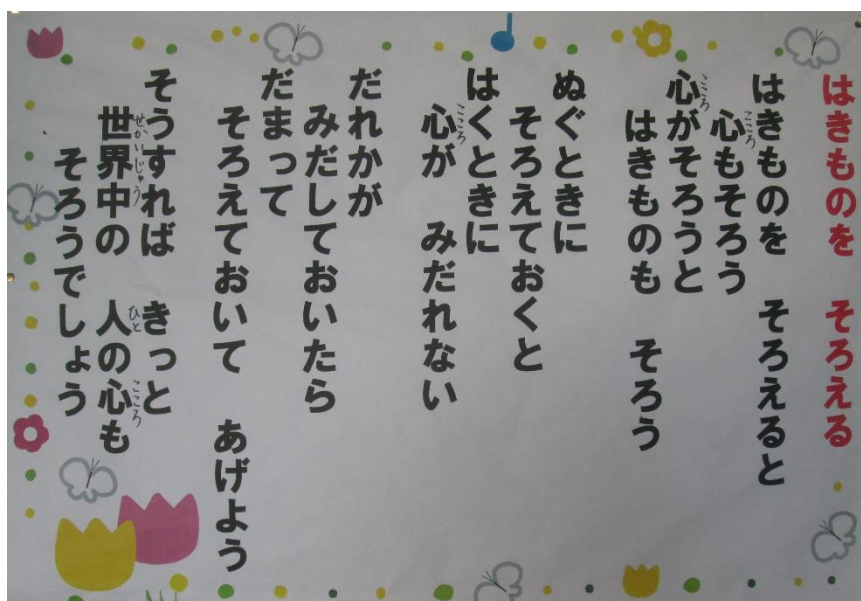 はきものを　そろえる
はきものを　そろえると
心もそろう
心がそろうと
はきものも　そろう
ぬぐときに
そろえておくと
はくときに
心が　みだれない
だれかが
みだしておいたら
だまって
そろえておいて　あげよう
そうすれば　きっと
世界中の　人の心も
そろうでしょう